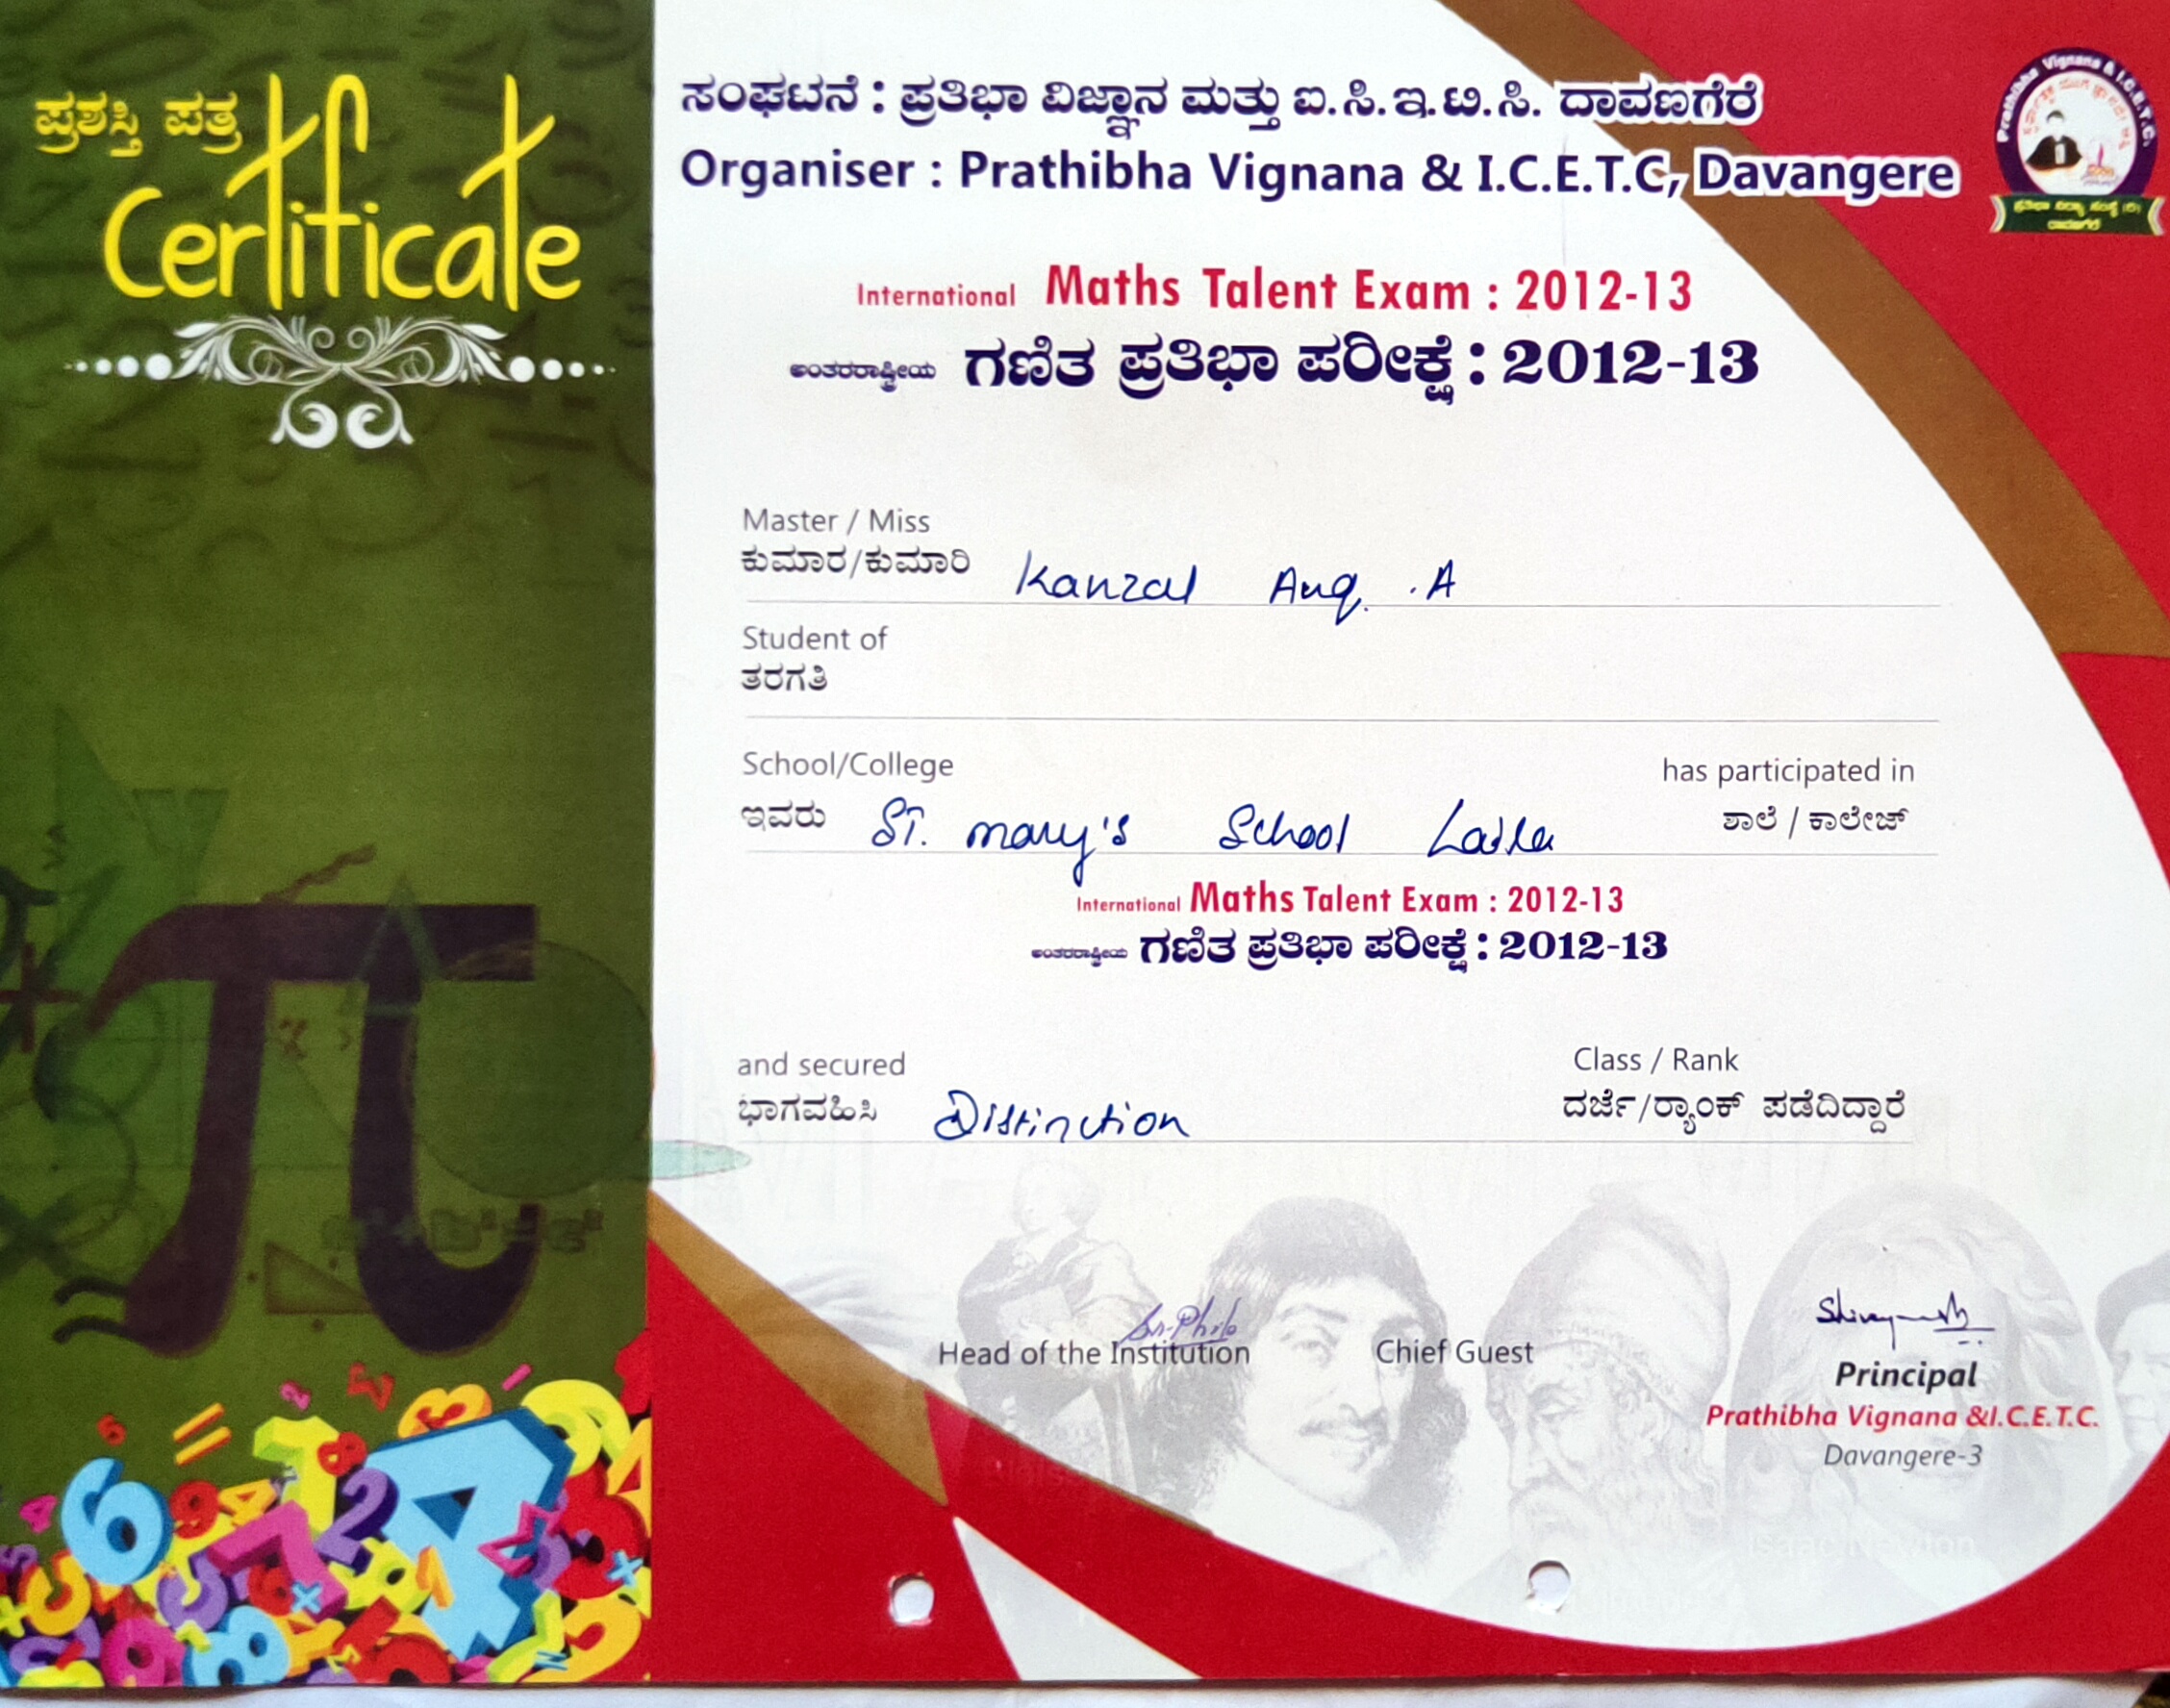 ಪ್ರಶಸ್ತಿ ಪತ್ರ
Certificate
ಸಂಘಟನೆ : ಪ್ರತಿಭಾ ವಿಜ್ಞಾನ ಮತ್ತು ಐ.ಸಿ.ಇ.ಟಿ.ಸಿ. ದಾವಣಗೆರೆ
Organiser : Prathibha Vignana & I.C.E.T.C, Davangere
Prathibha Vignana & I.C.E.T.C.
International Maths Talent Exam : 2012-13
ಅಂತರರಾಷ್ಟ್ರೀಯ ಗಣಿತ ಪ್ರತಿಭಾ ಪರೀಕ್ಷೆ : 2012-13
Master / Miss
ಕುಮಾರ/ಕುಮಾರಿ Kanzal Anq. .A
Student of
ತರಗತಿ
School/College has participated in
ಇವರು ST. mary's School ಶಾಲೆ / ಕಾಲೇಜ್
International Maths Talent Exam : 2012-13
ಅಂತರರಾಷ್ಟ್ರೀಯ ಗಣಿತ ಪ್ರತಿಭಾ ಪರೀಕ್ಷೆ : 2012-13
and secured Class / Rank
ಭಾಗವಹಿಸಿ Distinction ದರ್ಜೆ/ರ‍್ಯಾಂಕ್ ಪಡೆದಿದ್ದಾರೆ
Head of the Institution Chief Guest
Principal
Prathibha Vignana &I.C.E.T.C.
Davangere-3
Isaac Newton